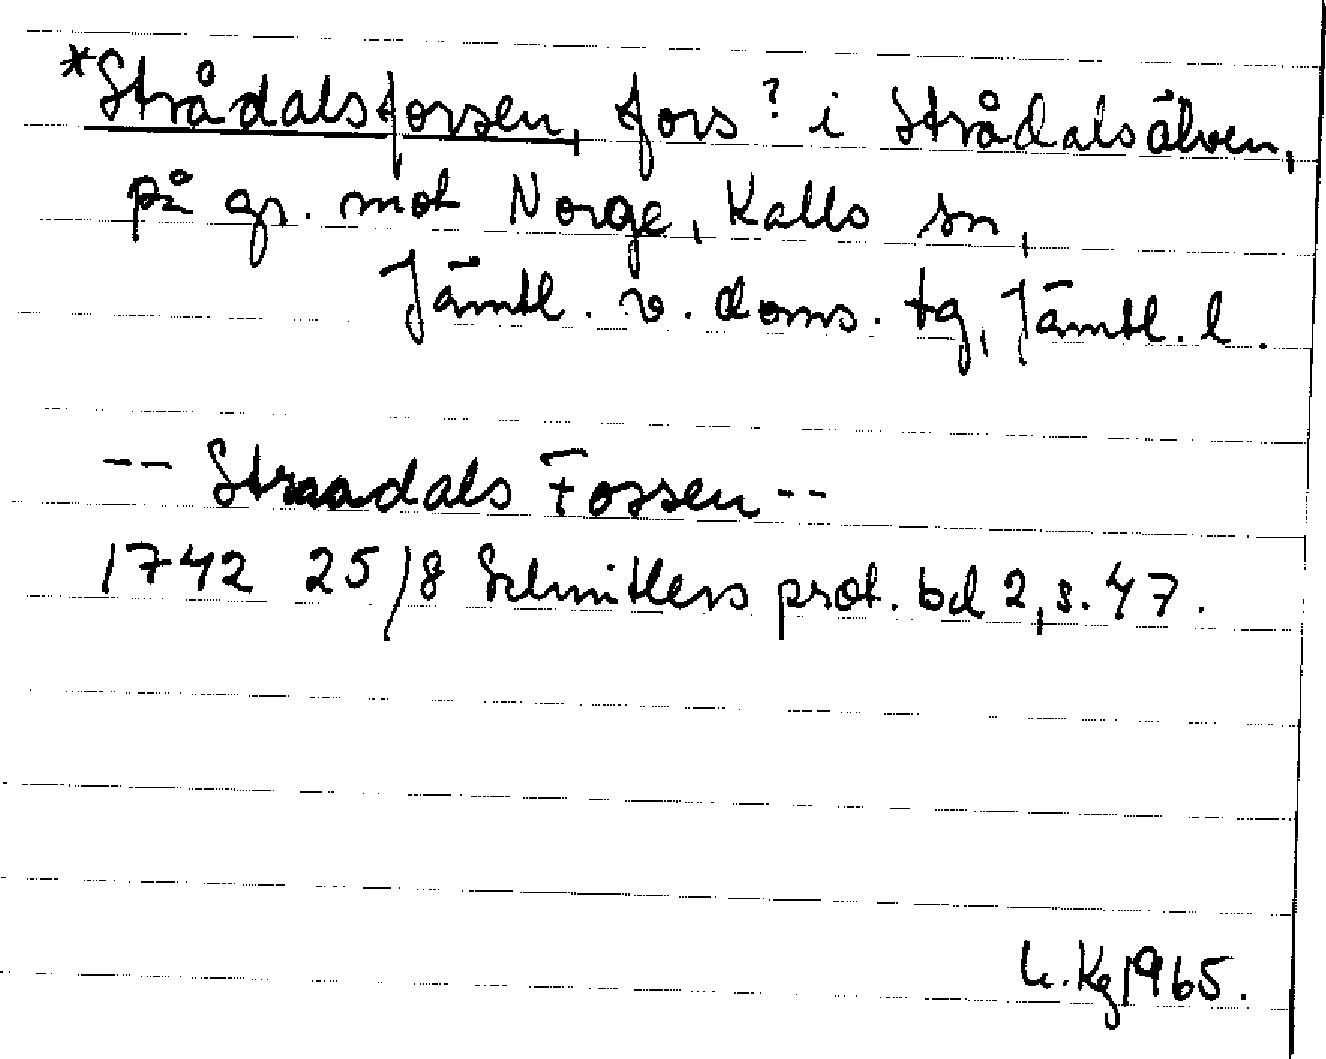 *Strådalsforsen, fors? i Strådalsälven,
på gr. mot Norge, Kalls sn,
Jämtl. v. doms. tg, Jämtl. l.
-- Straadals Fossen --
1742 25/8 Schnitlers prot. bd 2, s. 47.
Kg 1965.